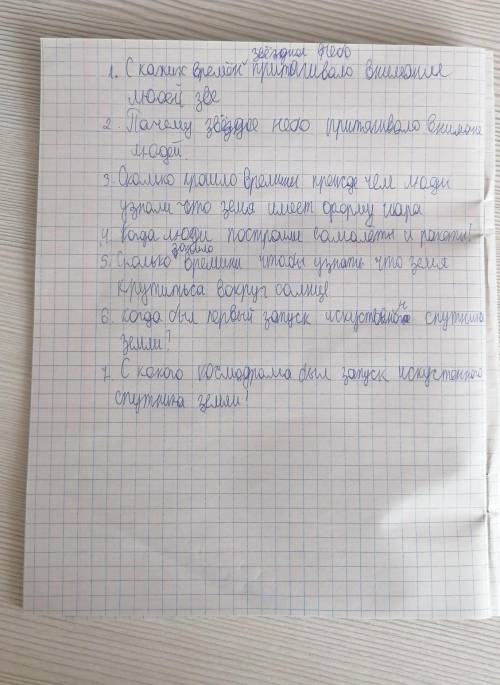 звёздная небо
1. С каких времён притягивало внимание
людей зве
2. Почему звёздое небо притягивало внимоне
людей.
3. Сколько прошло времини прежде чем люди
узнали что земя имеет форму шара
4. Когда люди построили самолёты и ракеты?
заняло
5. Сколько времини чтобы узнать что земя
крутиться вокруг солнце
6. Когда был первый запуск искуственого спутника
земли?
7. С какого космодрама был запуск искуственого
спутника земли?